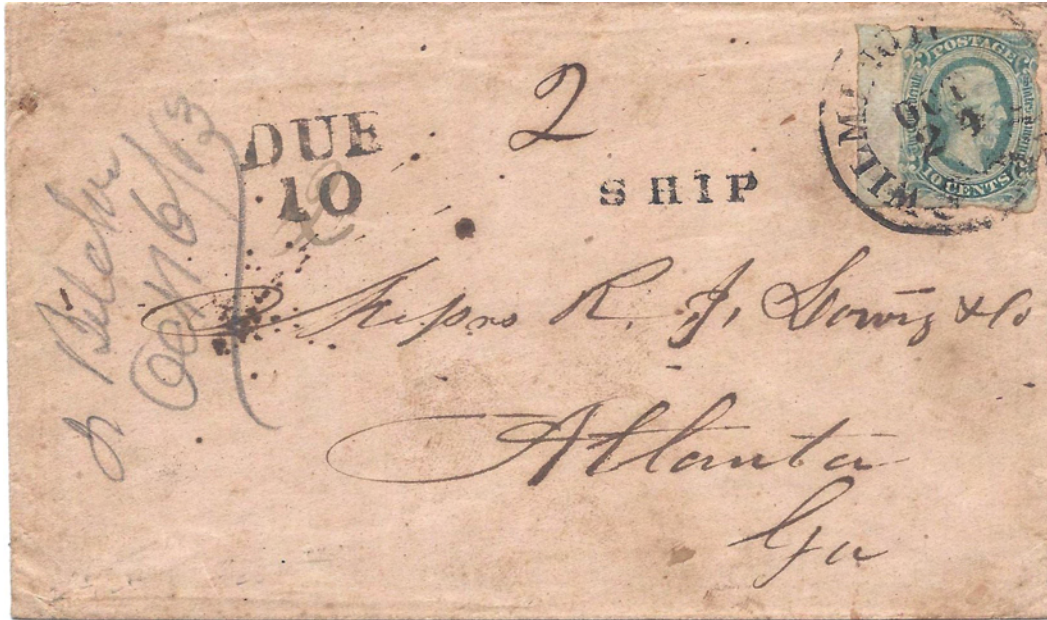 DUE
10
2
SHIP
WILMINGTON
OCT
24
POSTAGE
10 CENTS
Messrs R. J. Lowry & Co
Atlanta
Ga
Oct 16/63